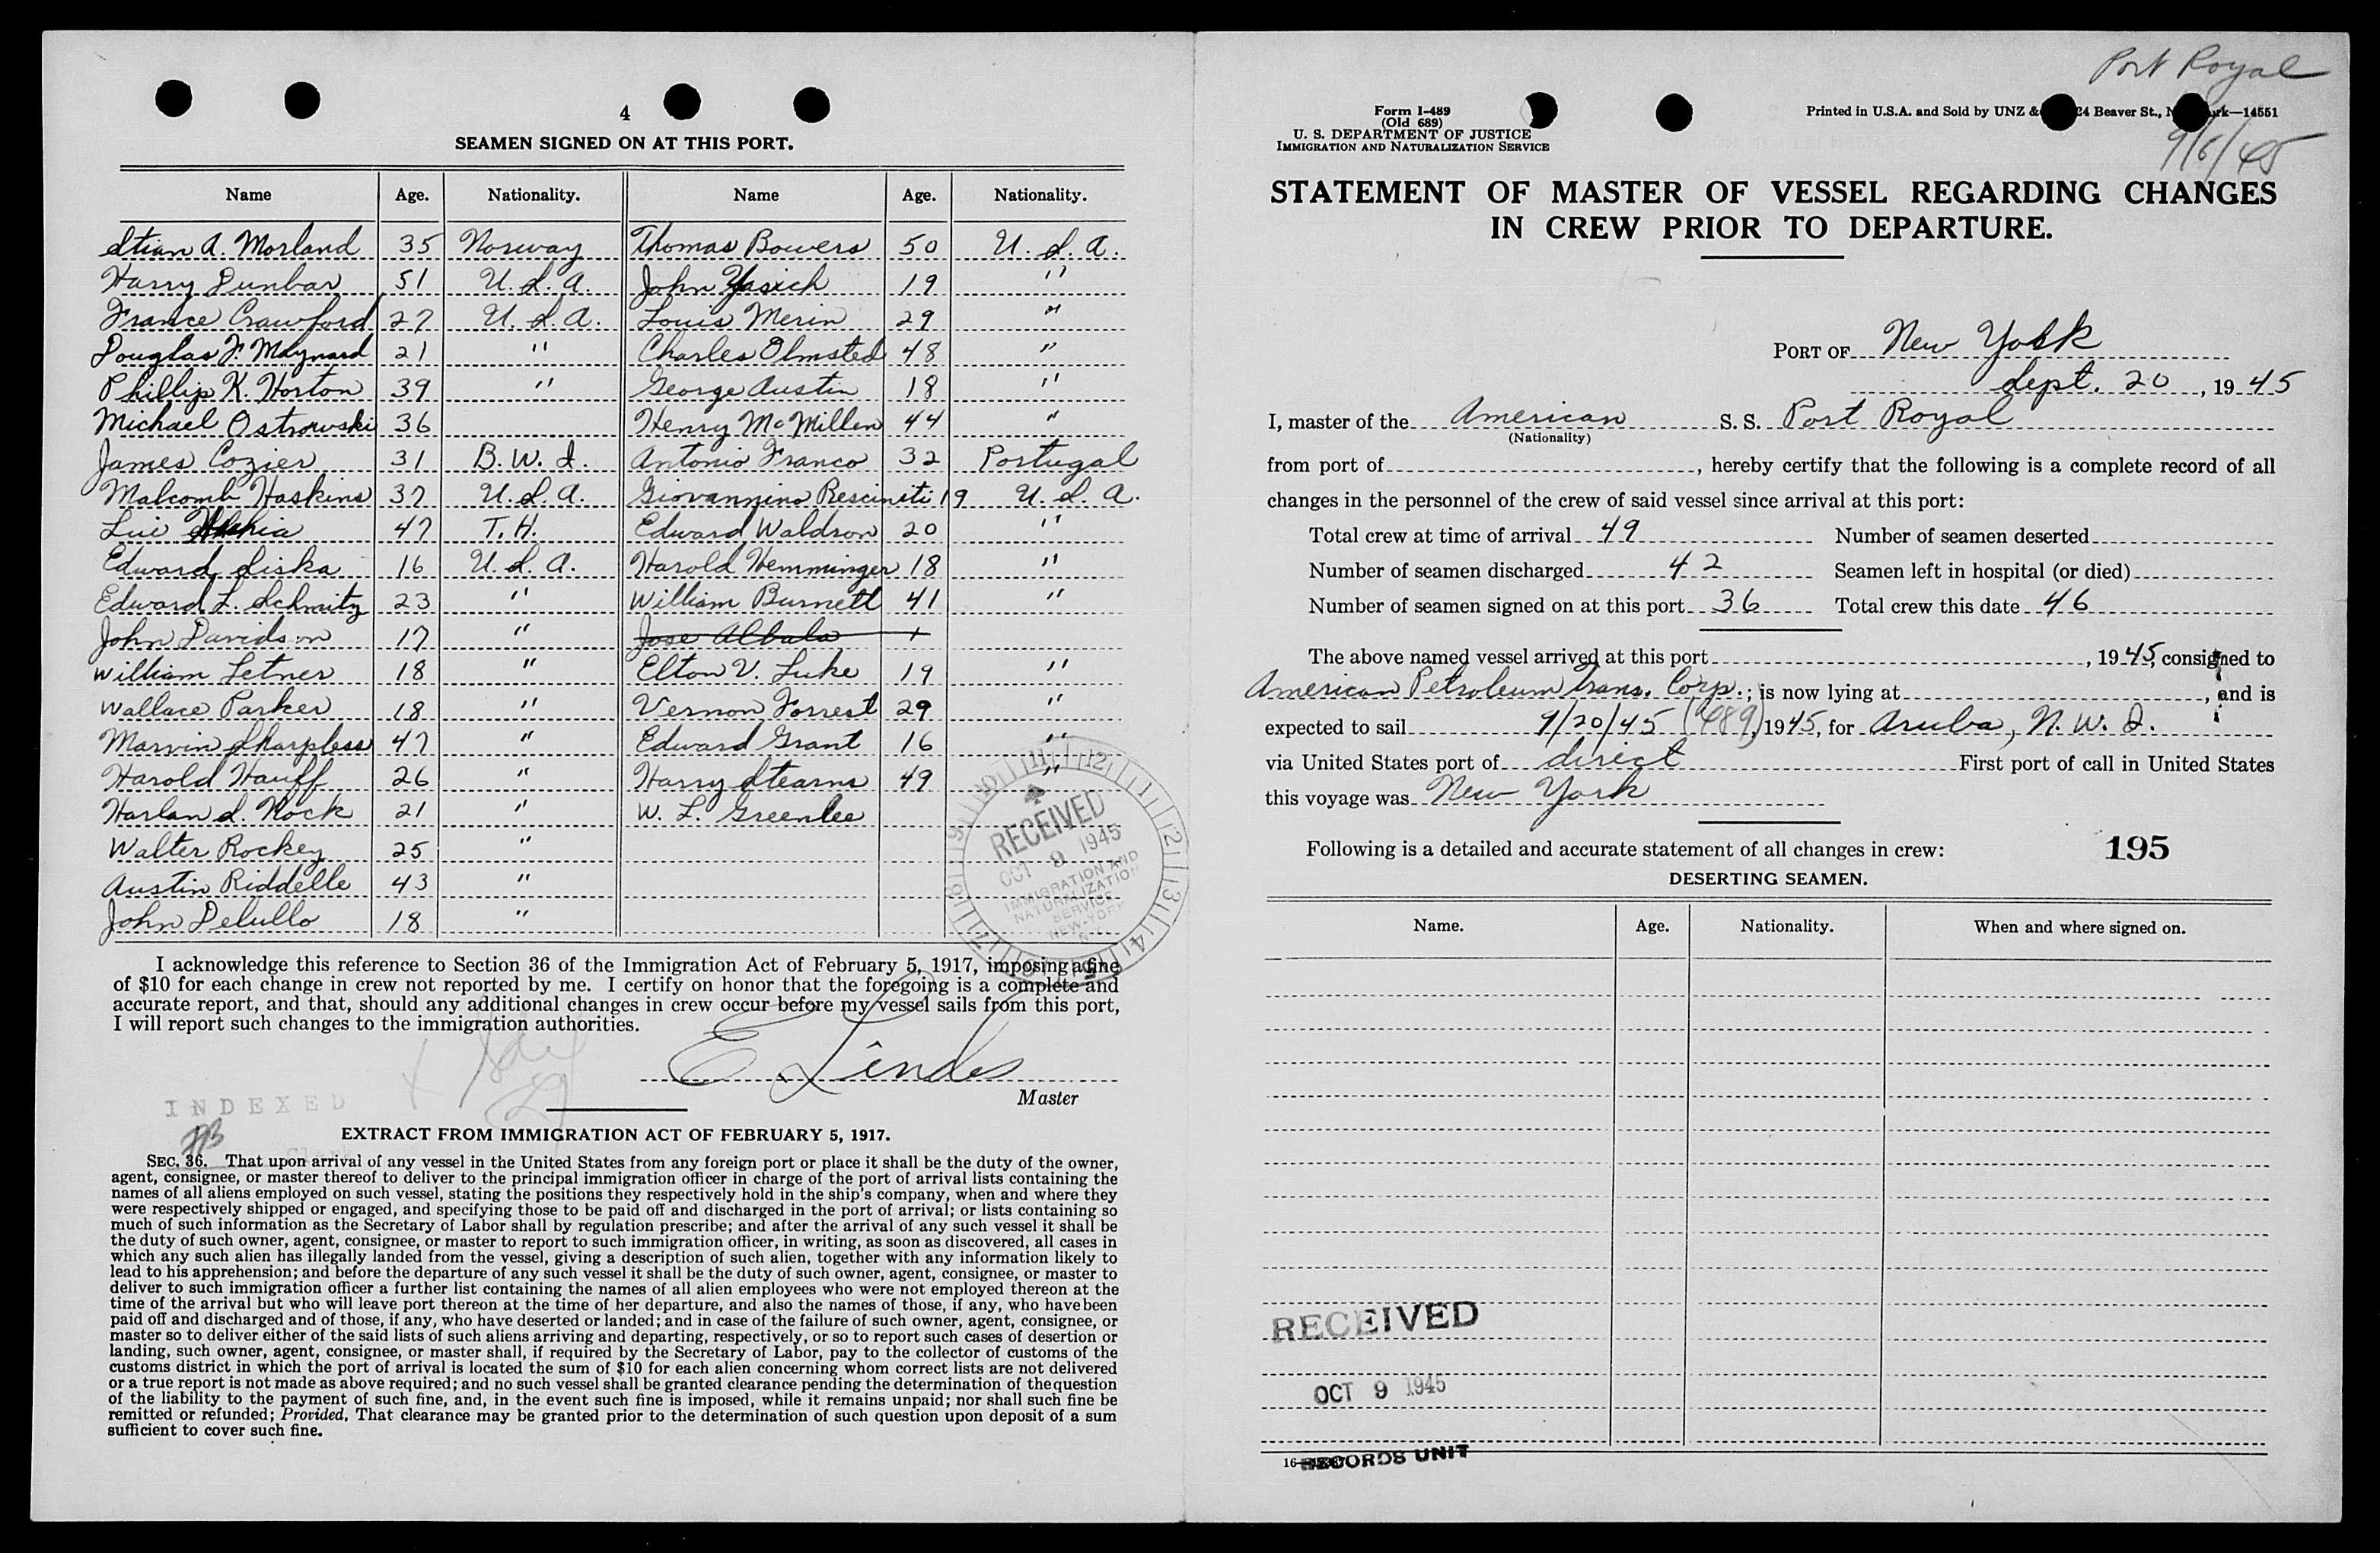 4
SEAMEN SIGNED ON AT THIS PORT.
Name Age. Nationality. Name Age. Nationality.
Stian A. Morland 35 Norway Thomas Bowers 50 U.S.A.
Harry Dunbar 51 U.S.A. John Yasich 19 "
France Crawford 27 U.S.A. Louis Merin 29 "
Douglas F. Maynard 21 " Charles Olmsted 48 "
Phillip K. Horton 39 " George Austin 18 "
Michael Ostrowski 36 Henry McMillen 44 "
James Cozier 31 B.W.I. Antonio Franco 32 Portugal
Malcomb Haskins 37 U.S.A. Giovannino Resciniti 19 U.S.A.
Lui 47 T.H. Edward Waldron 20 "
Edward Siska 16 U.S.A. Harold Hemminger 18 "
Edward L. Schmitz 23 " William Burnett 41 "
John Davidson 17 " Jose Albala +
William Letner 18 " Elton V. Luke 19 "
Wallace Parker 18 " Vernon Forrest 29 "
Marvin Sharpless 47 " Edward Grant 16 "
Harold Hauff 26 " Harry Stearns 49 "
Harlan S. Nock 21 " W. L. Greenlee
Walter Rockey 25 "
Austin Riddelle 43 "
John Delullo 18 "
RECEIVED
OCT 9 1945
IMMIGRATION AND
NATURALIZATION
SERVICE
NEW YORK
N.Y.
I acknowledge this reference to Section 36 of the Immigration Act of February 5, 1917, imposing a fine
of $10 for each change in crew not reported by me. I certify on honor that the foregoing is a complete and
accurate report, and that, should any additional changes in crew occur before my vessel sails from this port,
I will report such changes to the immigration authorities.
E Lindes
Master
INDEXED
Clerk
EXTRACT FROM IMMIGRATION ACT OF FEBRUARY 5, 1917.
SEC. 36. That upon arrival of any vessel in the United States from any foreign port or place it shall be the duty of the owner,
agent, consignee, or master thereof to deliver to the principal immigration officer in charge of the port of arrival lists containing the
names of all aliens employed on such vessel, stating the positions they respectively hold in the ship's company, when and where they
were respectively shipped or engaged, and specifying those to be paid off and discharged in the port of arrival; or lists containing so
much of such information as the Secretary of Labor shall by regulation prescribe; and after the arrival of any such vessel it shall be
the duty of such owner, agent, consignee, or master to report to such immigration officer, in writing, as soon as discovered, all cases in
which any such alien has illegally landed from the vessel, giving a description of such alien, together with any information likely to
lead to his apprehension; and before the departure of any such vessel it shall be the duty of such owner, agent, consignee, or master to
deliver to such immigration officer a further list containing the names of all alien employees who were not employed thereon at the
time of the arrival but who will leave port thereon at the time of her departure, and also the names of those, if any, who have been
paid off and discharged and of those, if any, who have deserted or landed; and in case of the failure of such owner, agent, consignee, or
master so to deliver either of the said lists of such aliens arriving and departing, respectively, or so to report such cases of desertion or
landing, such owner, agent, consignee, or master shall, if required by the Secretary of Labor, pay to the collector of customs of the
customs district in which the port of arrival is located the sum of $10 for each alien concerning whom correct lists are not delivered
or a true report is not made as above required; and no such vessel shall be granted clearance pending the determination of the question
of the liability to the payment of such fine, and, in the event such fine is imposed, while it remains unpaid; nor shall such fine be
remitted or refunded; Provided, That clearance may be granted prior to the determination of such question upon deposit of a sum
sufficient to cover such fine.
Port Royal
9/6/45
Form I-489
(Old 689)
U. S. DEPARTMENT OF JUSTICE
IMMIGRATION AND NATURALIZATION SERVICE
Printed in U.S.A. and Sold by UNZ & 24 Beaver St., —14551
STATEMENT OF MASTER OF VESSEL REGARDING CHANGES
IN CREW PRIOR TO DEPARTURE.
PORT OF New York
Sept. 20, 1945
I, master of the American S. S. Port Royal
(Nationality)
from port of , hereby certify that the following is a complete record of all
changes in the personnel of the crew of said vessel since arrival at this port:
Total crew at time of arrival 49 Number of seamen deserted
Number of seamen discharged 42 Seamen left in hospital (or died)
Number of seamen signed on at this port 36 Total crew this date 46
The above named vessel arrived at this port , 1945, consigned to
American Petroleum Trans. Corp.; is now lying at , and is
expected to sail 9/20/45 (489), 1945, for Aruba, N.W.I.
via United States port of direct First port of call in United States
this voyage was New York
Following is a detailed and accurate statement of all changes in crew: 195
DESERTING SEAMEN.
Name. Age. Nationality. When and where signed on.
RECEIVED
OCT 9 1945
RECORDS UNIT
16—